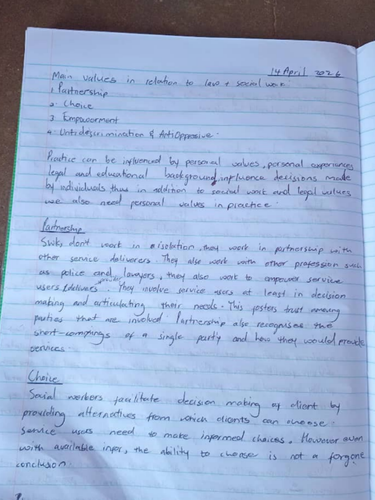 14 April 2026
Main values in relation to law + social work
1. Partnership
2. Choice
3 Empowerment
4. Anti discrimination & Anti Oppressive.
Practice can be influenced by personal values, personal experiences
legal and educational background, influence decisions made
by individuals thus in addition to social work and legal values
we also need personal values in practice.
Partnership
SWks don't work in isolation, they work in partnership with
other service deliverers. They also work with other profession such
as police and lawyers, they also work to empower service
users. They involve service users at least in decision
making and articulating their needs. This fosters trust among
parties that are involved. Partnership also recognises the
short-comings of a single party and how they would provide
services
Choice
Social workers facilitate decision making of client by
providing alternatives from which clients can choose.
Service users need to make informed choices. However even
with available infor, the ability to choose is not a forgone
conclusion